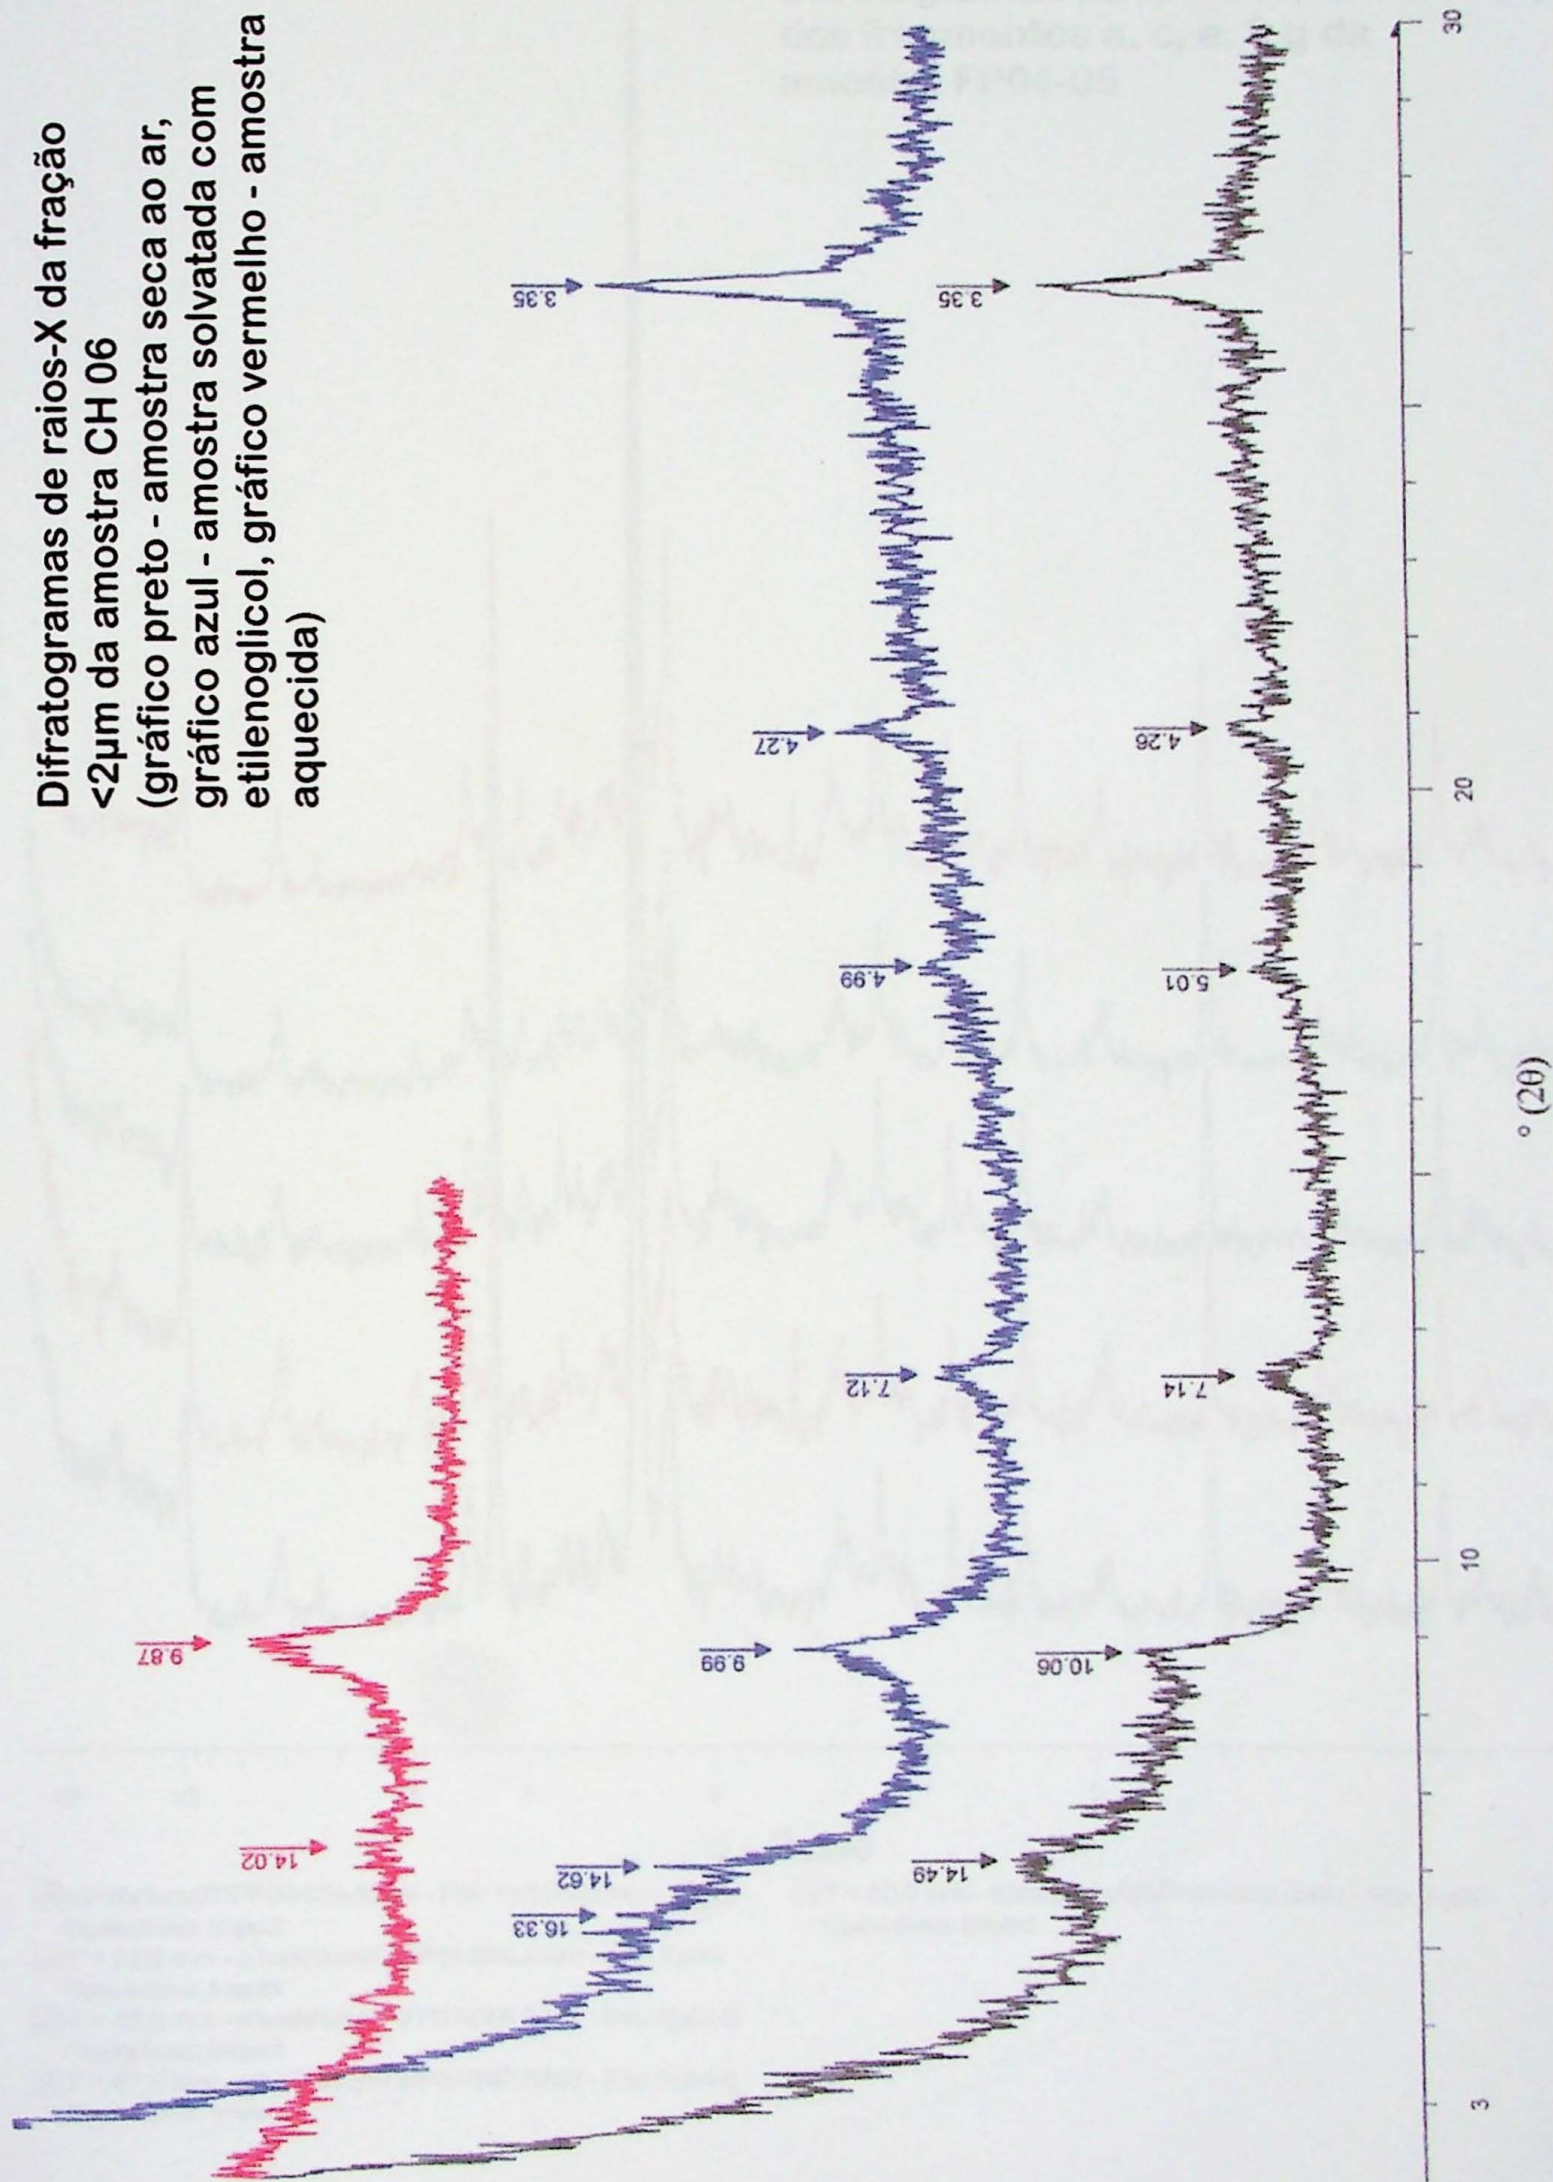 Difratogramas de raios-X da fração
<2µm da amostra CH 06
(gráfico preto - amostra seca ao ar,
gráfico azul - amostra solvatada com
etilenoglicol, gráfico vermelho - amostra
aquecida)
14.02
9.87
16.33
14.62
9.99
7.12
4.99
4.27
3.35
14.49
10.06
7.14
5.01
4.26
3.35
3
10
20
30
° (2θ)